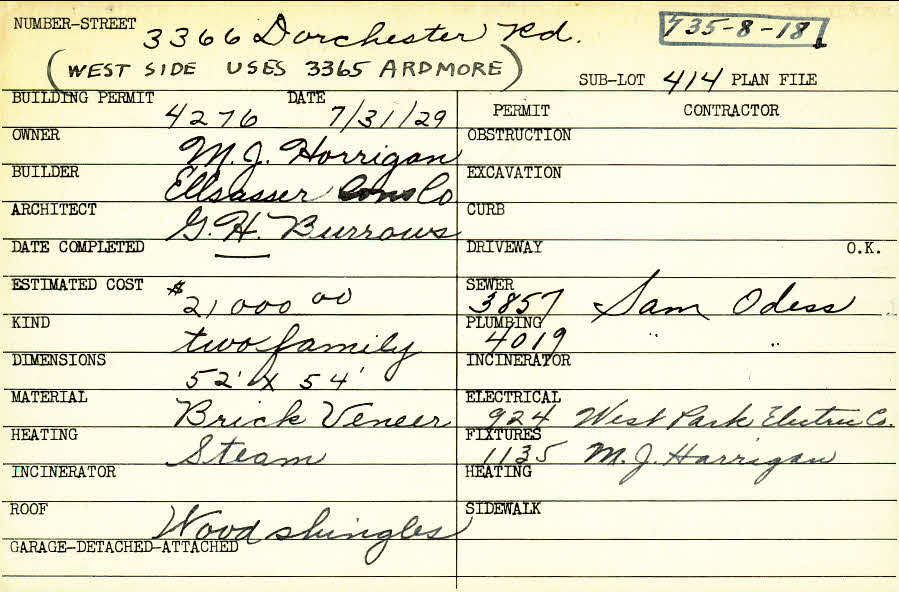 NUMBER-STREET 3366 Dorchester Rd. 735-8-18
(WEST SIDE USES 3365 ARDMORE)
SUB-LOT 414 PLAN FILE
BUILDING PERMIT 4276 DATE 7/31/29
PERMIT CONTRACTOR
OWNER M. J. Horrigan
OBSTRUCTION
BUILDER Ellsasser Cons Co
EXCAVATION
ARCHITECT G. H. Burrows
CURB
DATE COMPLETED —
DRIVEWAY O.K.
ESTIMATED COST $21000 00
SEWER 3857 Sam Odess
KIND two family
PLUMBING 4019 " "
DIMENSIONS 52' x 54'
INCINERATOR
MATERIAL Brick Veneer
ELECTRICAL 924 West Park Electric Co.
HEATING Steam
FIXTURES 1135 M. J. Harrigan
INCINERATOR
HEATING
ROOF Wood shingles
SIDEWALK
GARAGE-DETACHED-ATTACHED